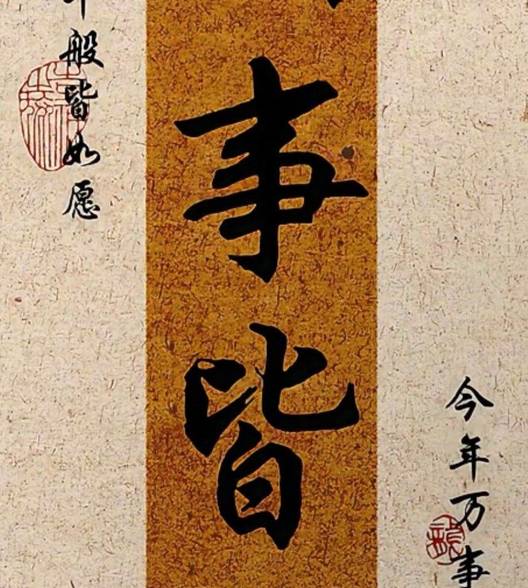 今年万事
事皆
般皆如愿